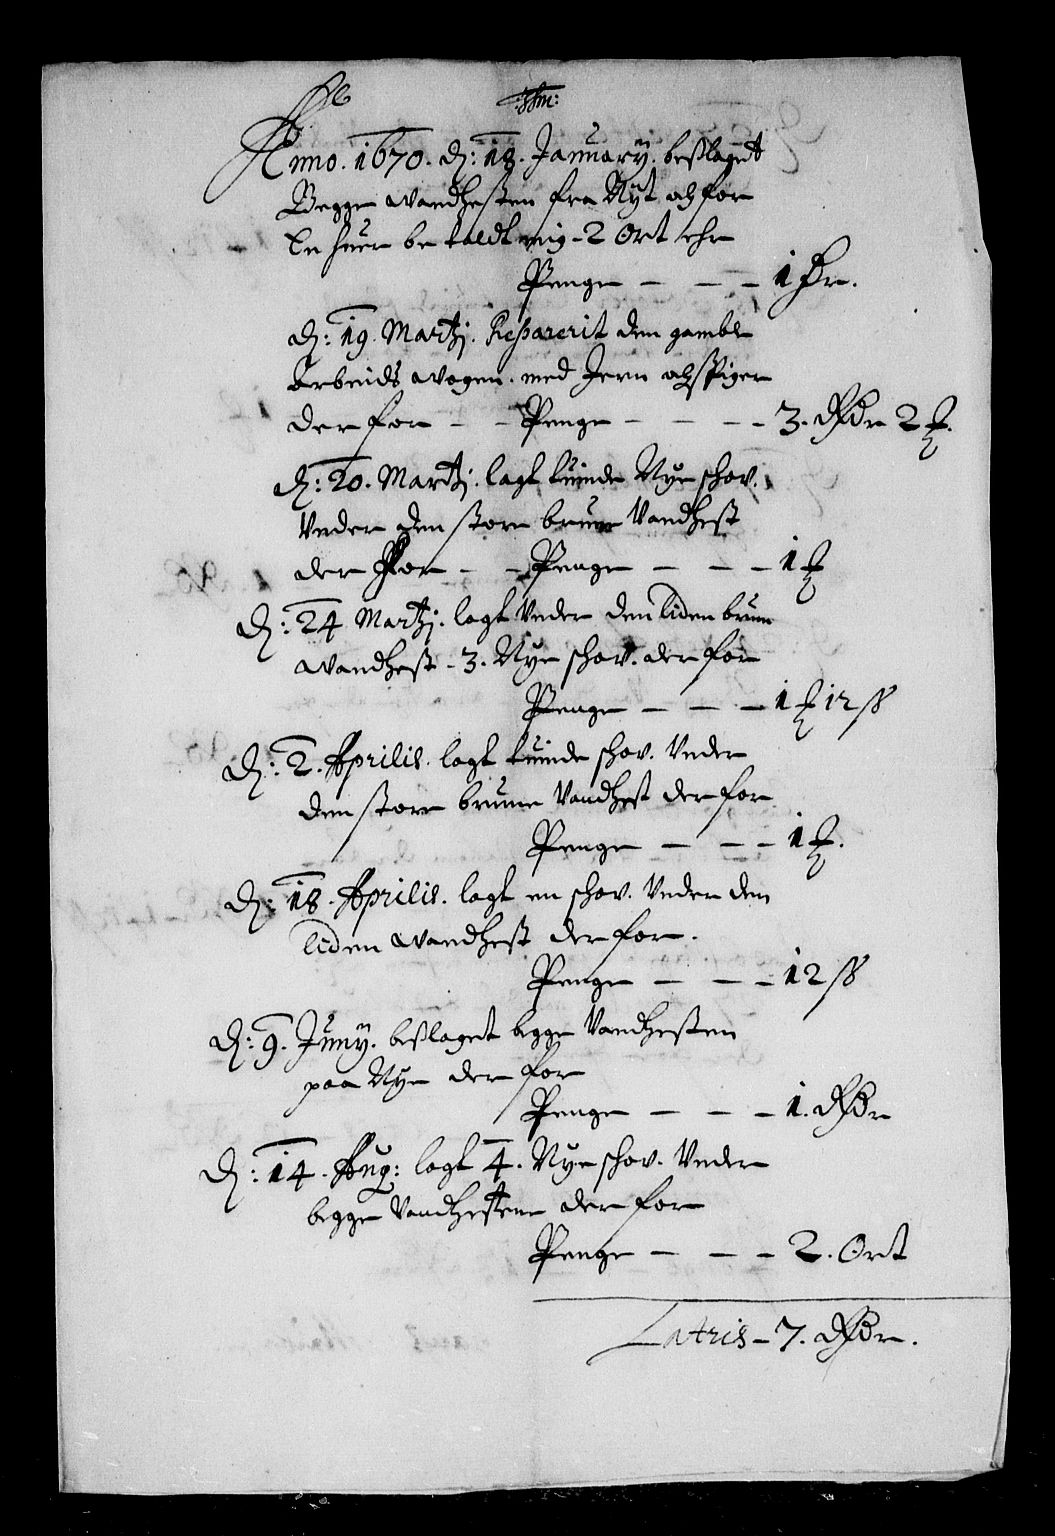 Anno. 1670. d: 18. Januarÿ. beslaget
Begge wandhesten fra Nyt, och for
En huer betaldt mig - 2 Ort ehr
Penge - - - 1 Dr.
d: 19. Martj. Reparerit den gamble
Arbeids wogen. med Jern och spiger
der for - - Penge - - - 3. Rdr 2 ₰.
d: 20. Martj. lagt tuinde Nye schov.
Vnder den store brune Vandhest
der for - - Penge - - - 1 ₰
d: 24 Martj. lagt Vnder den liden brune
wandhest - 3. Nye schov. der for
Penge - - - 1 ₰ 12 ß
d: 2. Aprilis. lagt tuinde schov. Vnder
den store brune Vandhest der for
Penge - - - 1 ₰.
d: 18. Aprilis. lagt en schov. Vnder den
liden wandhest der for.
Penge - - - 12 ß
d: 9. Junÿ. beslaget begge Vandhesten
paa Nye der for
Penge - - - 1. Rdr
d: 14. Aug: lagt 4. Nye schov. Vnder
begge Vandhestene der for
Penge - - - 2. Ort
Latris - 7. Rdr.